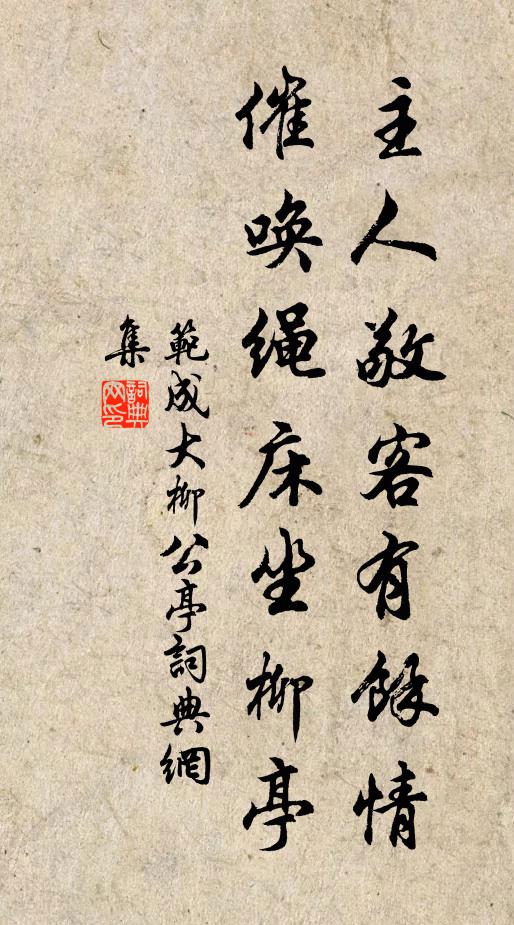 主人敬客有餘情
催唤绳床坐柳亭
範成大柳公亭詞典網
集
詞典
网印